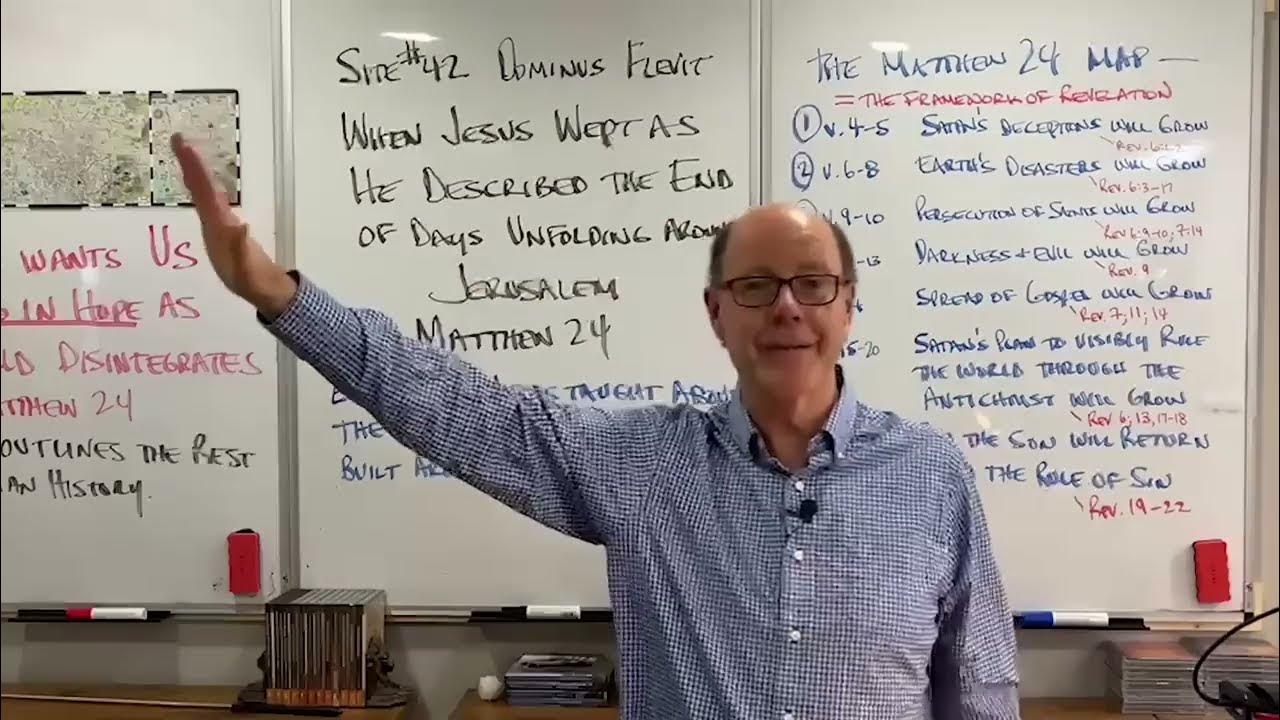 WANTS US
IN HOPE AS
DISINTEGRATES
MATTHEW 24
OUTLINES THE REST
HISTORY.
SITE #42 DOMINUS FLEVIT
WHEN JESUS WEPT AS
HE DESCRIBED THE END
OF DAYS UNFOLDING
JERUSALEM
MATTHEW 24
TAUGHT
THE
BUILT
THE MATTHEW 24 MAP —
= THE FRAMEWORK OF REVELATION
1 v. 4-5 SATAN'S DECEPTIONS WILL GROW
2 v. 6-8 EARTH'S DISASTERS WILL GROW
Rev. 6:3-17
v. 9-10 PERSECUTION OF SAINTS WILL GROW
Rev. 6:9-10; 7:14
DARKNESS + EVIL WILL GROW
Rev. 9
SPREAD OF GOSPEL WILL GROW
Rev. 7; 11; 14
SATAN'S PLAN TO VISIBLY RULE
THE WORLD THROUGH THE
ANTICHRIST WILL GROW
Rev 6; 13, 17-18
THE SON WILL RETURN
THE RULE OF SIN
Rev. 19-22